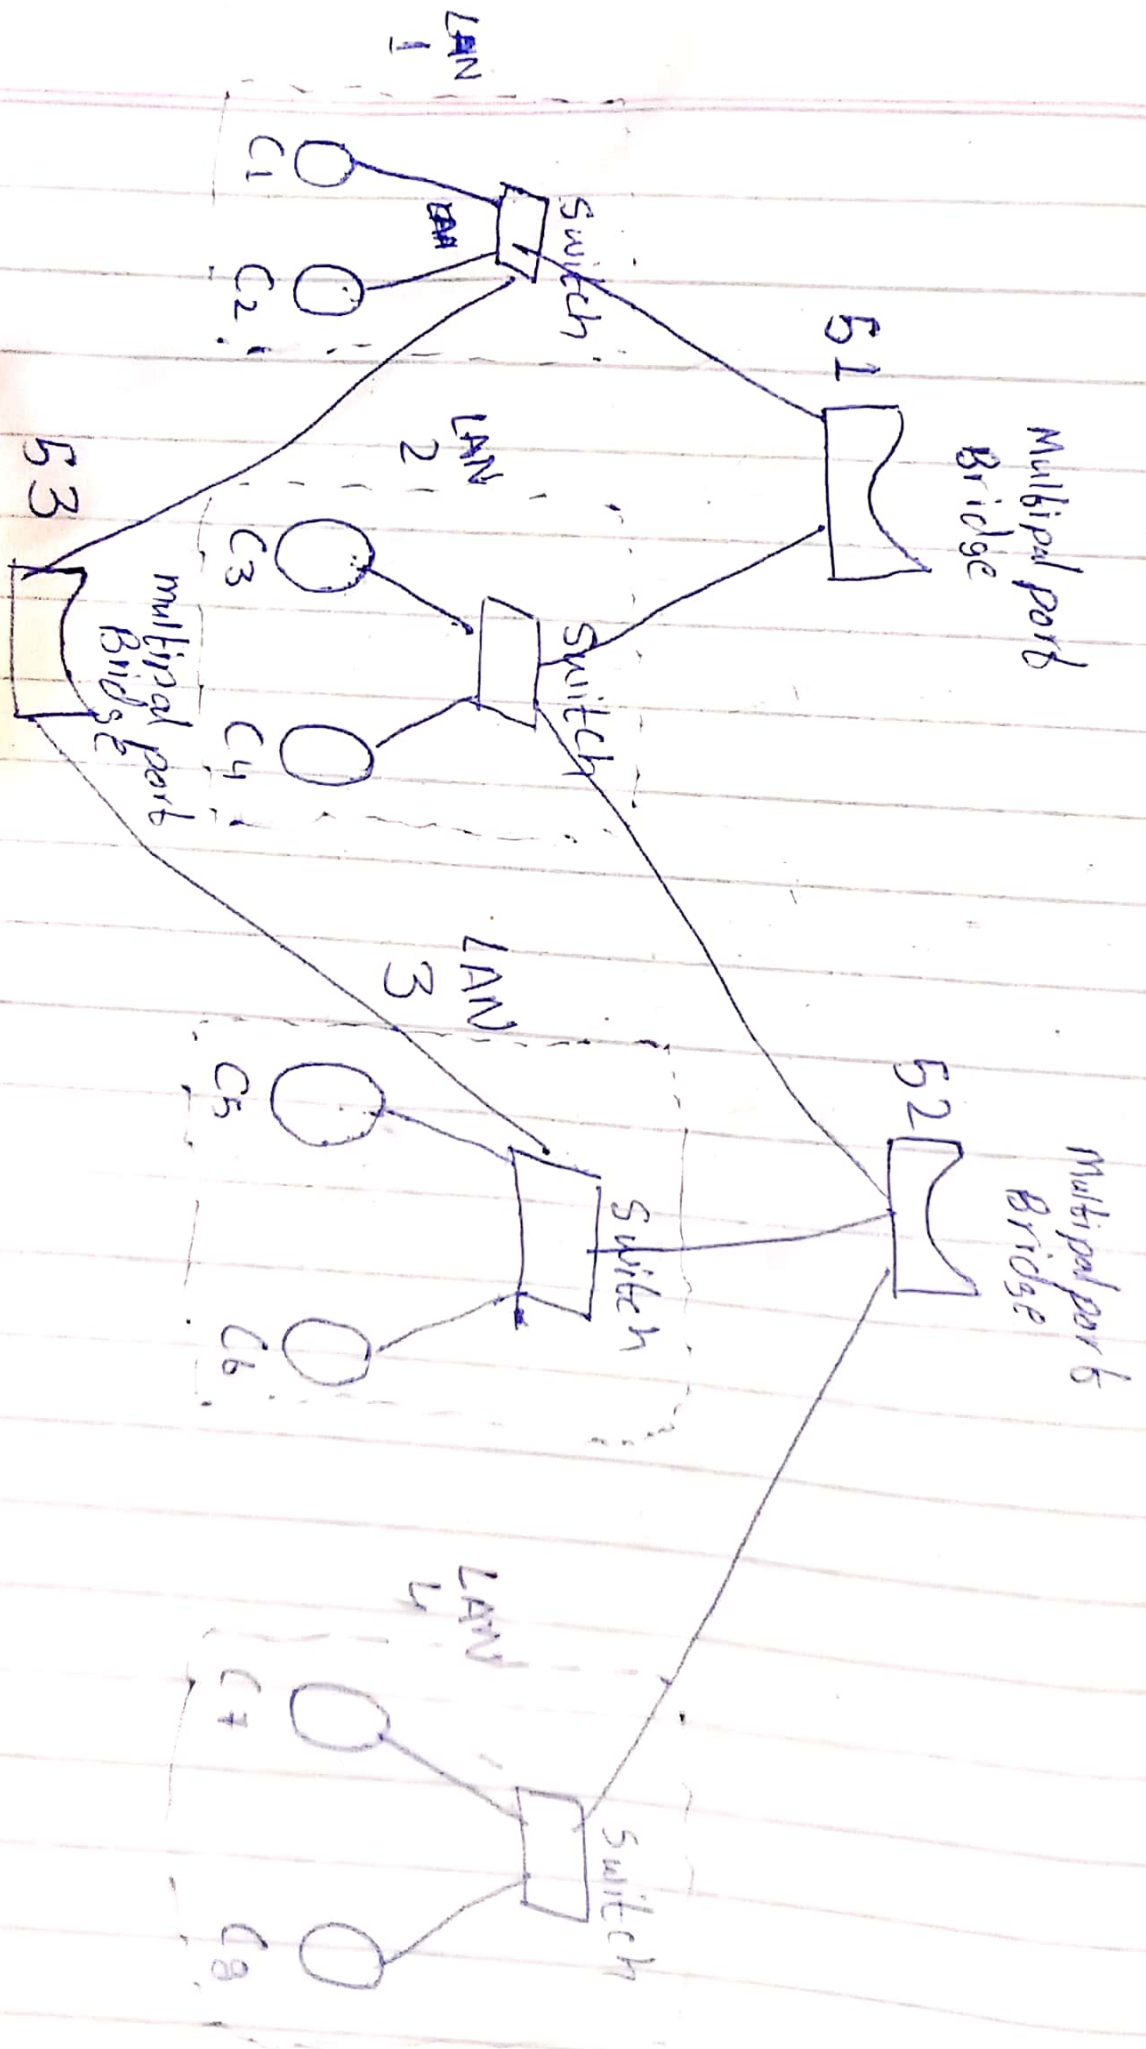 Multipal port
Bridge
51
Multipal port
Bridge
52
Switch
Switch
Switch
Switch
LAN
1
LAN
2
LAN
3
LAN
4
C1
C2
C3
C4
C5
C6
C7
C8
Multipal port
Bridge
53